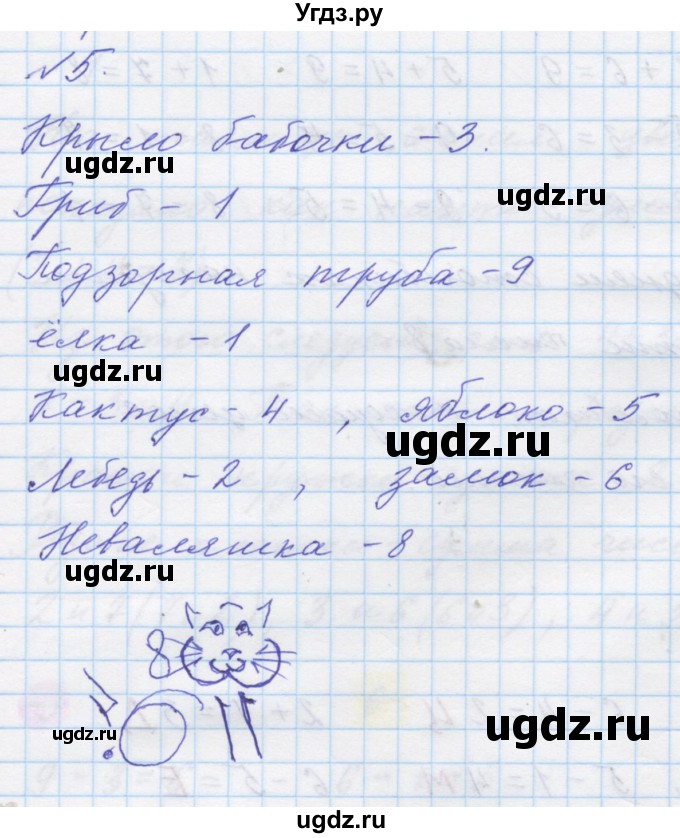 Угдз.ру
№5.
Крыло бабочки - 3.
ugdz.ru
ugdz.ru
Гриб - 1
Подзорная труба - 9
ёлка - 1
ugdz.ru
Кактус - 4, яблоко - 5
ugdz.ru
Лебедь - 2, замок - 6
ugdz.ru
Неваляшка - 8
ugdz.ru
8
ugdz.ru
ugdz.ru
ugdz.ru
ugdz.ru